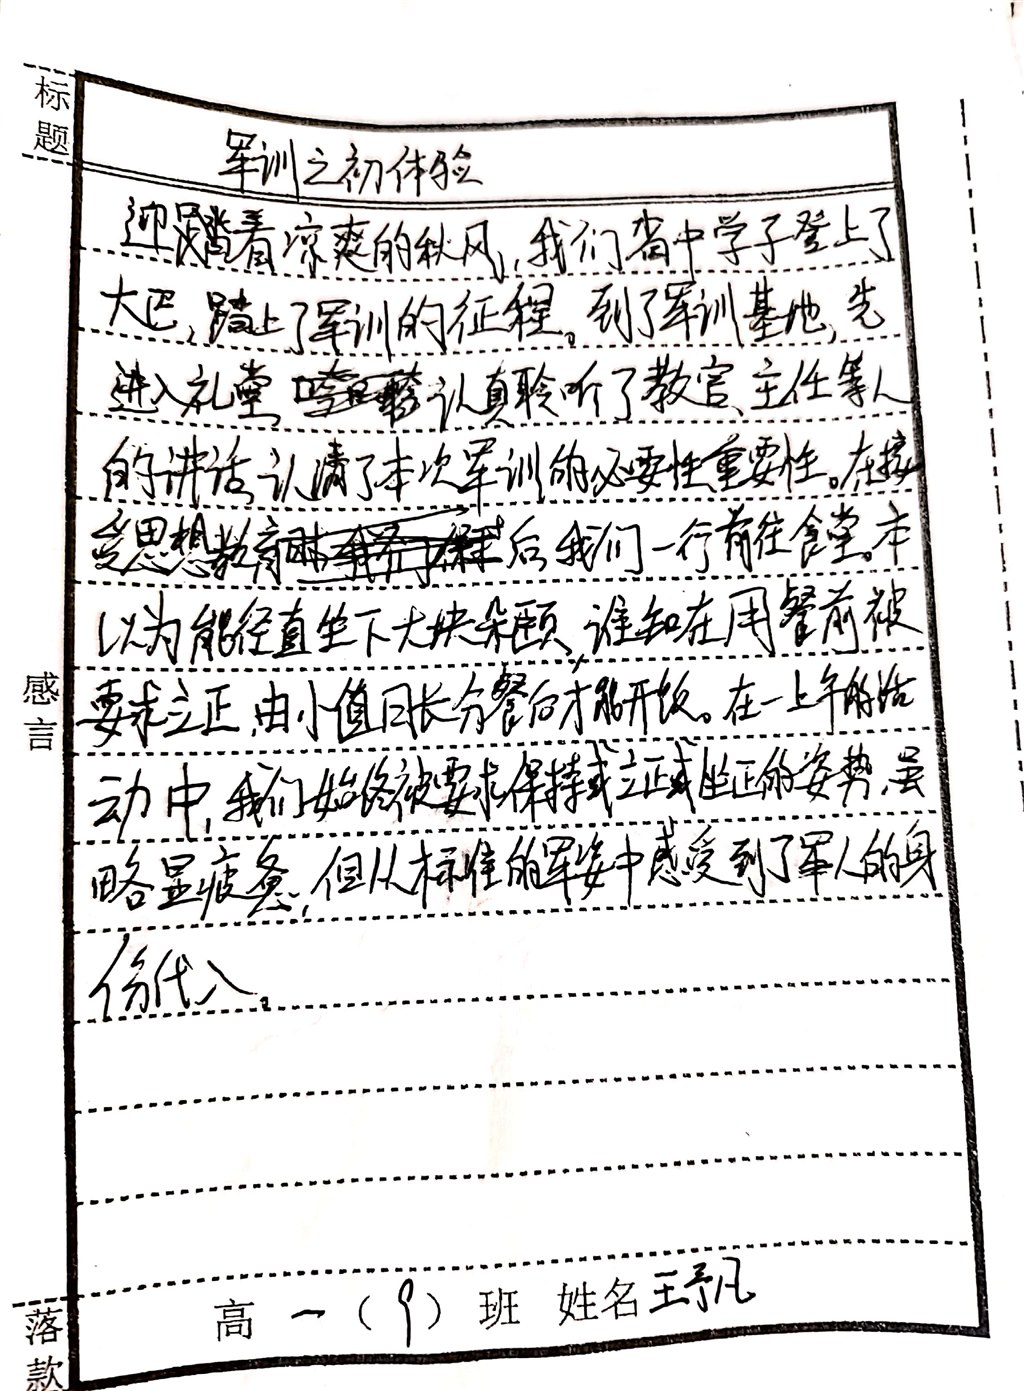 标题
军训之初体验
迎着凉爽的秋风，我们省中学子登上了
大巴，踏上了军训的征程。到了军训基地，先
进入礼堂，认真聆听了教官、主任等人
的讲话，认清了本次军训的必要性重要性。在接
受思想教育后，我们一行前往食堂。本
以为能径直坐下大快朵颐，谁知在用餐前被
要求立正，由小值日长分餐后才能开饭。在一上午的活
动中，我们始终被要求保持或立正或坐正的姿势，虽
略显疲惫，但从标准的军姿中感受到了军人的身
份代入。
感言
落款
高一（9）班 姓名 王予凡